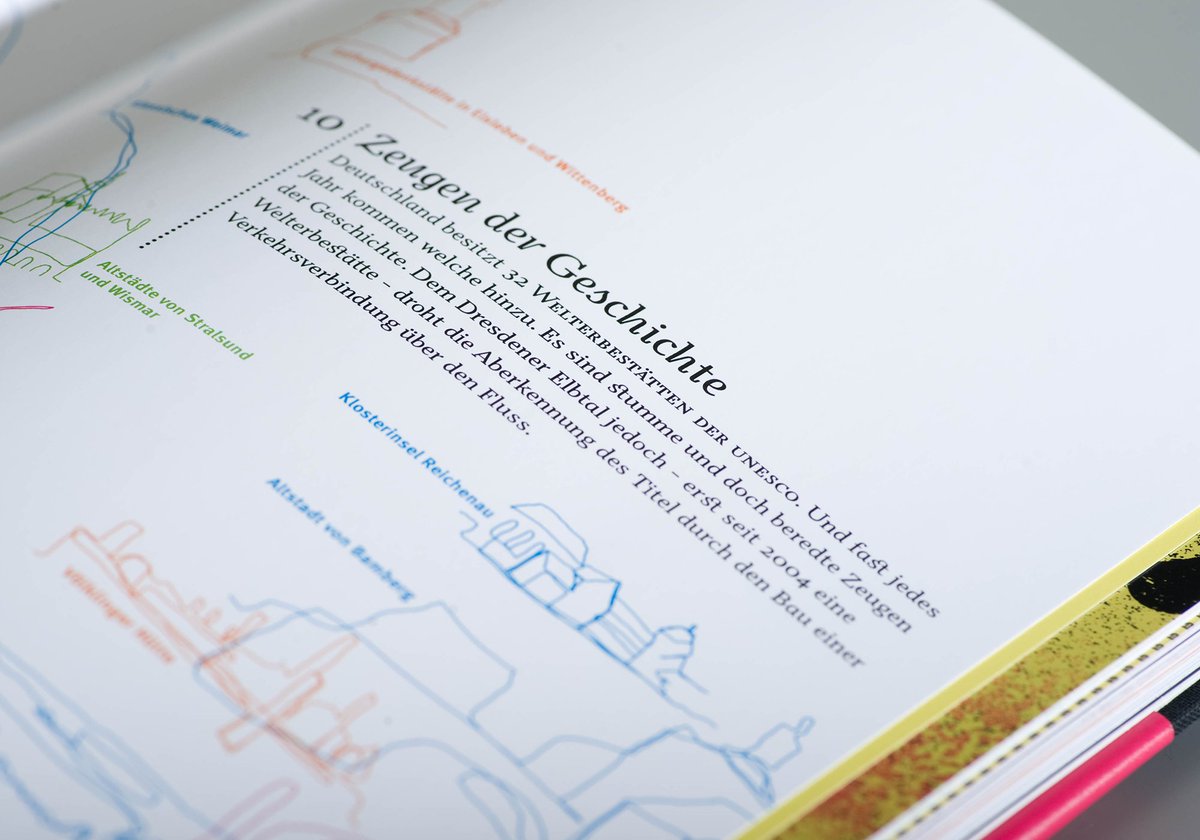 Luthergedenkstätte in Eisleben und Wittenberg
klassisches Weimar
10
Zeugen der Geschichte
Deutschland besitzt 32 WELTERBESTÄTTEN DER UNESCO. Und fast jedes
Jahr kommen welche hinzu. Es sind stumme und doch beredte Zeugen
der Geschichte. Dem Dresdener Elbtal jedoch – erst seit 2004 eine
Welterbestätte – droht die Aberkennung des Titel durch den Bau einer
Verkehrsverbindung über den Fluss.
Altstädte von Stralsund
und Wismar
Klosterinsel Reichenau
Altstadt von Bamberg
Völklinger Hütte